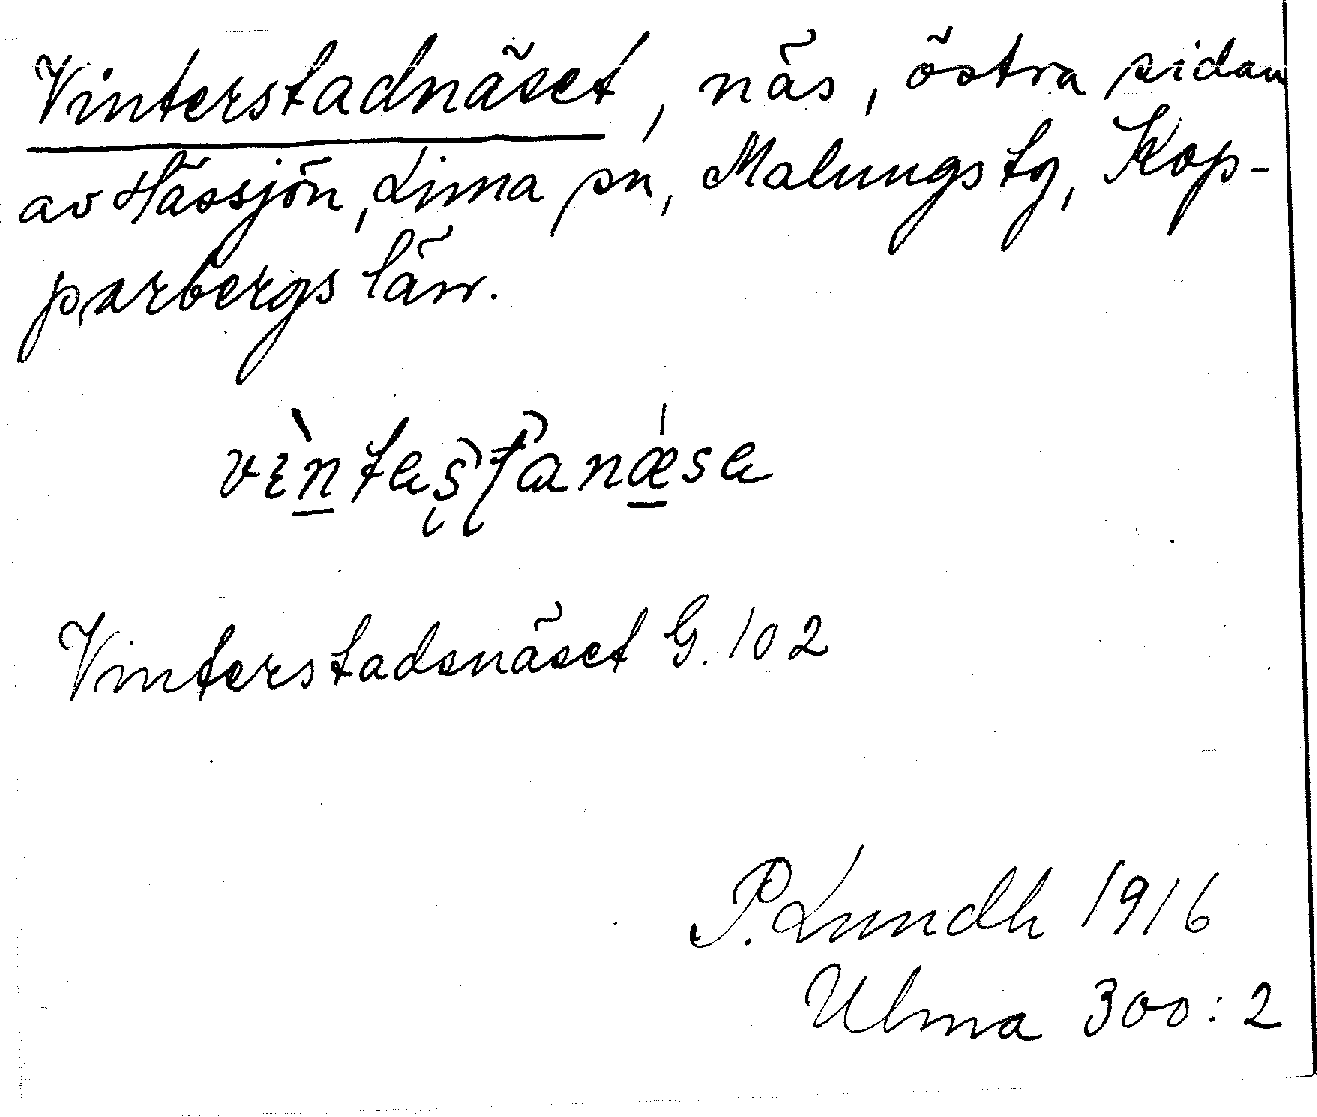 Vinterstadnäset, näs, östra sidan
av Hässjön, Lima sn, Malungs tg, Kop-
parbergs län.
Vinterstadsnäset G. 102
P. Lundh 1916
Ulma 300:2